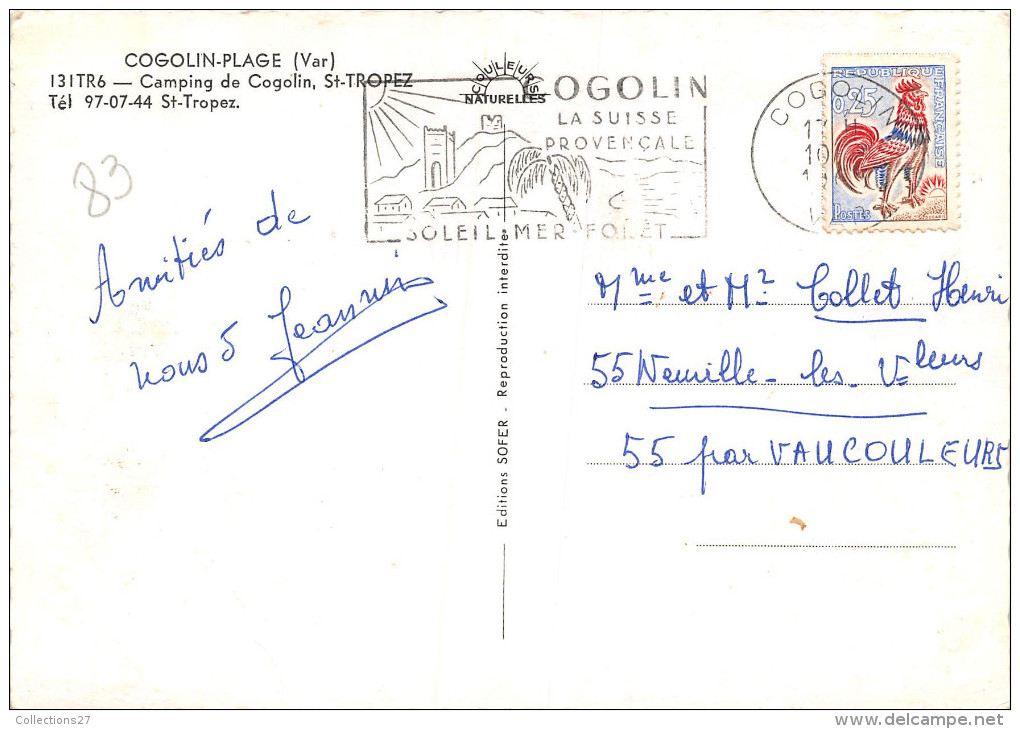 COGOLIN-PLAGE (Var)
131TR6 — Camping de Cogolin, St-TROPEZ
Tél 97-07-44 St-Tropez.
COULEURS
NATURELLES
COGOLIN
LA SUISSE
PROVENÇALE
SOLEIL-MER-FORÊT
COGOLIN
10
REPUBLIQUE
FRANÇAISE
0,25
POSTES
83
Amitiés de
nous 5 Jeannin
Mme et Mr Collet Henri
55 Neuville-les-Vleurs
55 par VAUCOULEURS
Editions SOFER - Reproduction interdite
Collections27
delcampe.net